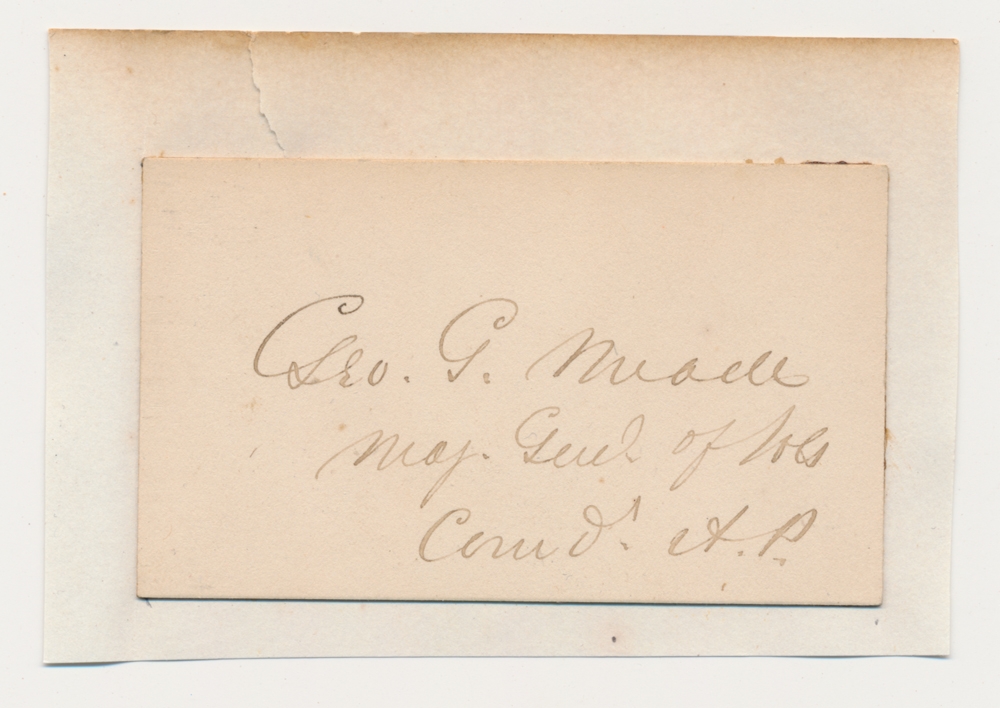 Geo. G. Meade
Maj. Genl of Vols
Comd'. A.P.